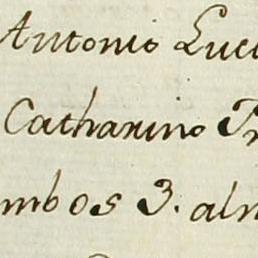 Antonio Luci
Catharino Pr
mbos 3. alm